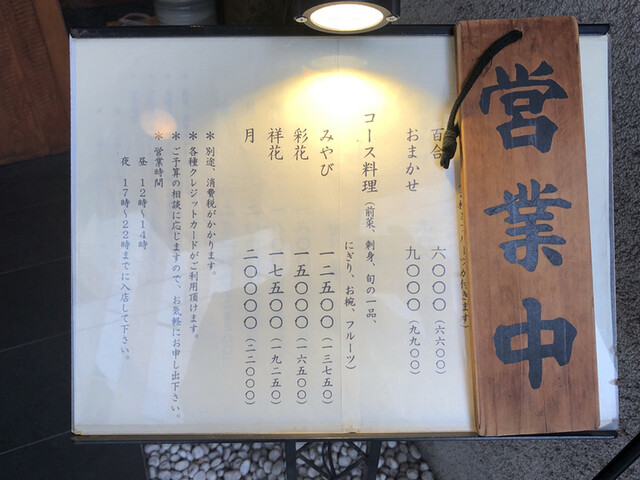 営業中
百合 六〇〇〇（六六〇〇）
おまかせ 九〇〇〇（九九〇〇）
コース料理（前菜、刺身、旬の一品、
にぎり、お椀、フルーツ）
みやび 一二五〇〇（一三七五〇）
彩花 一五〇〇〇（一六五〇〇）
祥花 一七五〇〇（一九二五〇）
月 二〇〇〇〇（二二〇〇〇）
＊別途、消費税がかかります。
＊各種クレジットカードがご利用頂けます。
＊ご予算の相談に応じますので、お気軽にお申し出下さい。
＊営業時間
昼 １２時〜１４時
夜 １７時〜２２時までに入店して下さい。